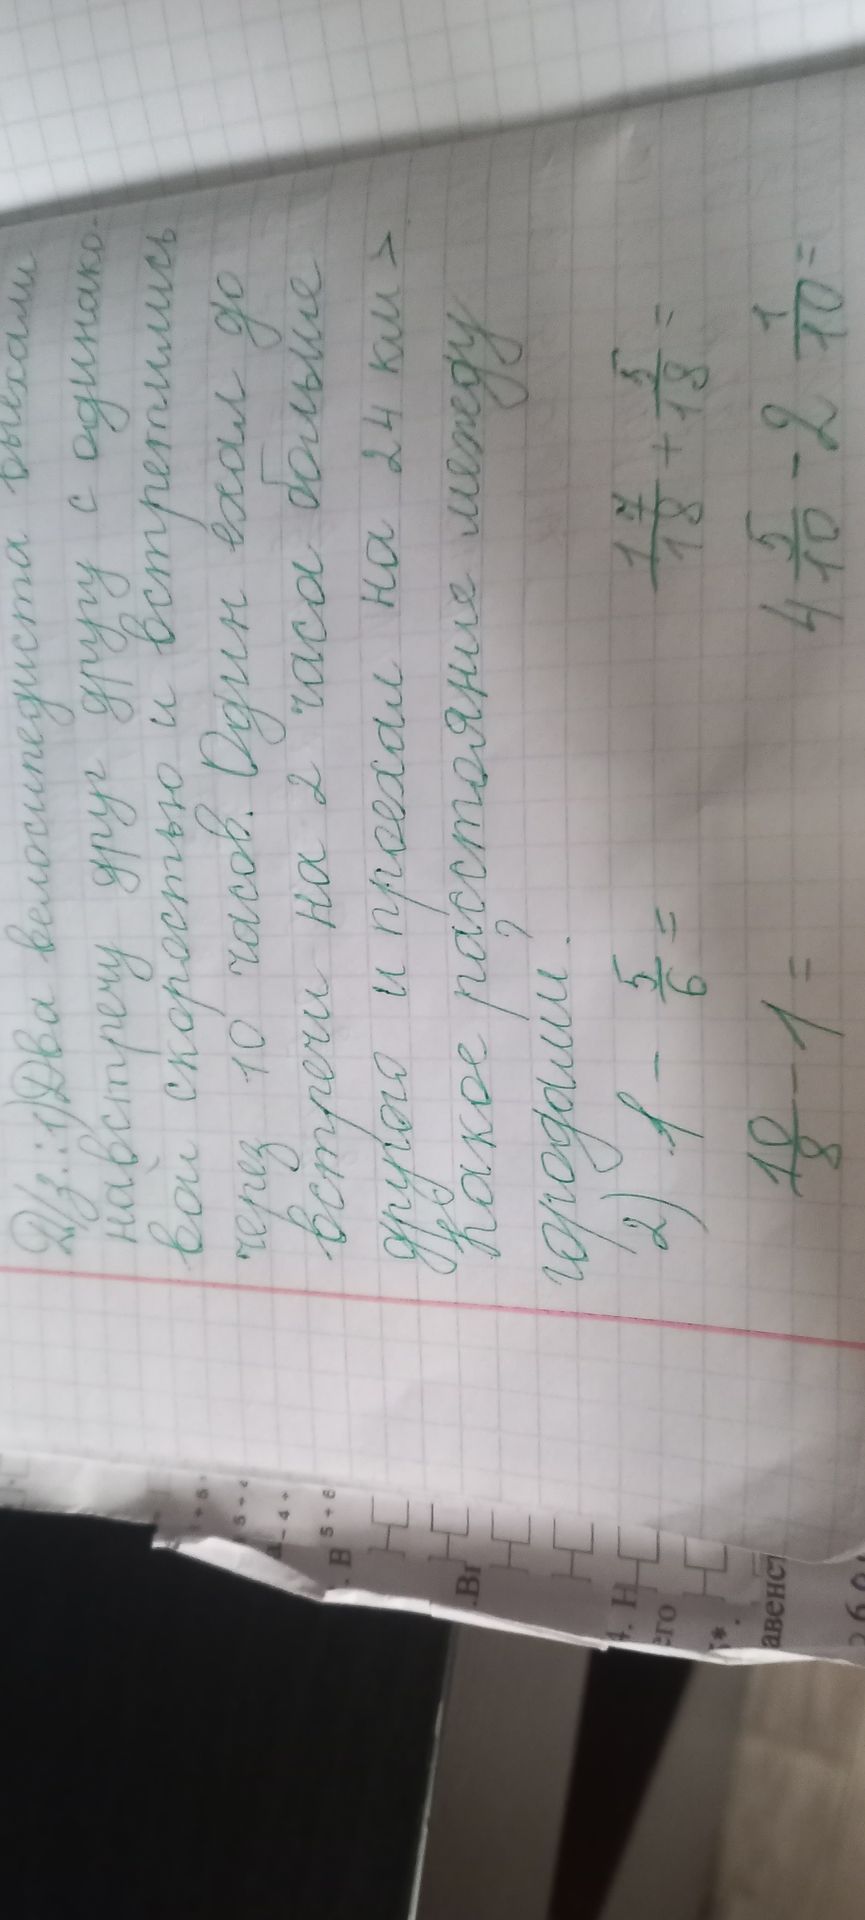 Д/з.: 1) Два велосипедиста выехали
навстречу друг другу с одинако-
вой скоростью и встретились
через 10 часов. Один ехал до
встречи на 2 часа больше
другого и проехал на 24 км >
Какое расстояние между
городами?
2) 1 - 5/6 = 17/18 + 5/18 =
10/8 - 1 = 4 5/10 - 2 1/10 =